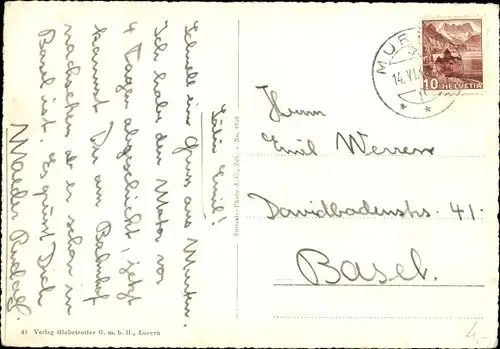 Salü Emil!
Schnell ein Gruss aus Murten.
Ich habe den Motor vor
4 Tagen abgeschickt, jetzt
kannst Du am Bahnhof
nachsehen ob er schon in
Basel ist. Es grüst Dich
Maeder Rudolf.
41 Verlag Globetrotter G. m. b. H., Luzern
MUR
14.VI.
10 HELVETIA
Herrn
Emil Werren
Davidbodenstr. 41.
Basel.
4,-